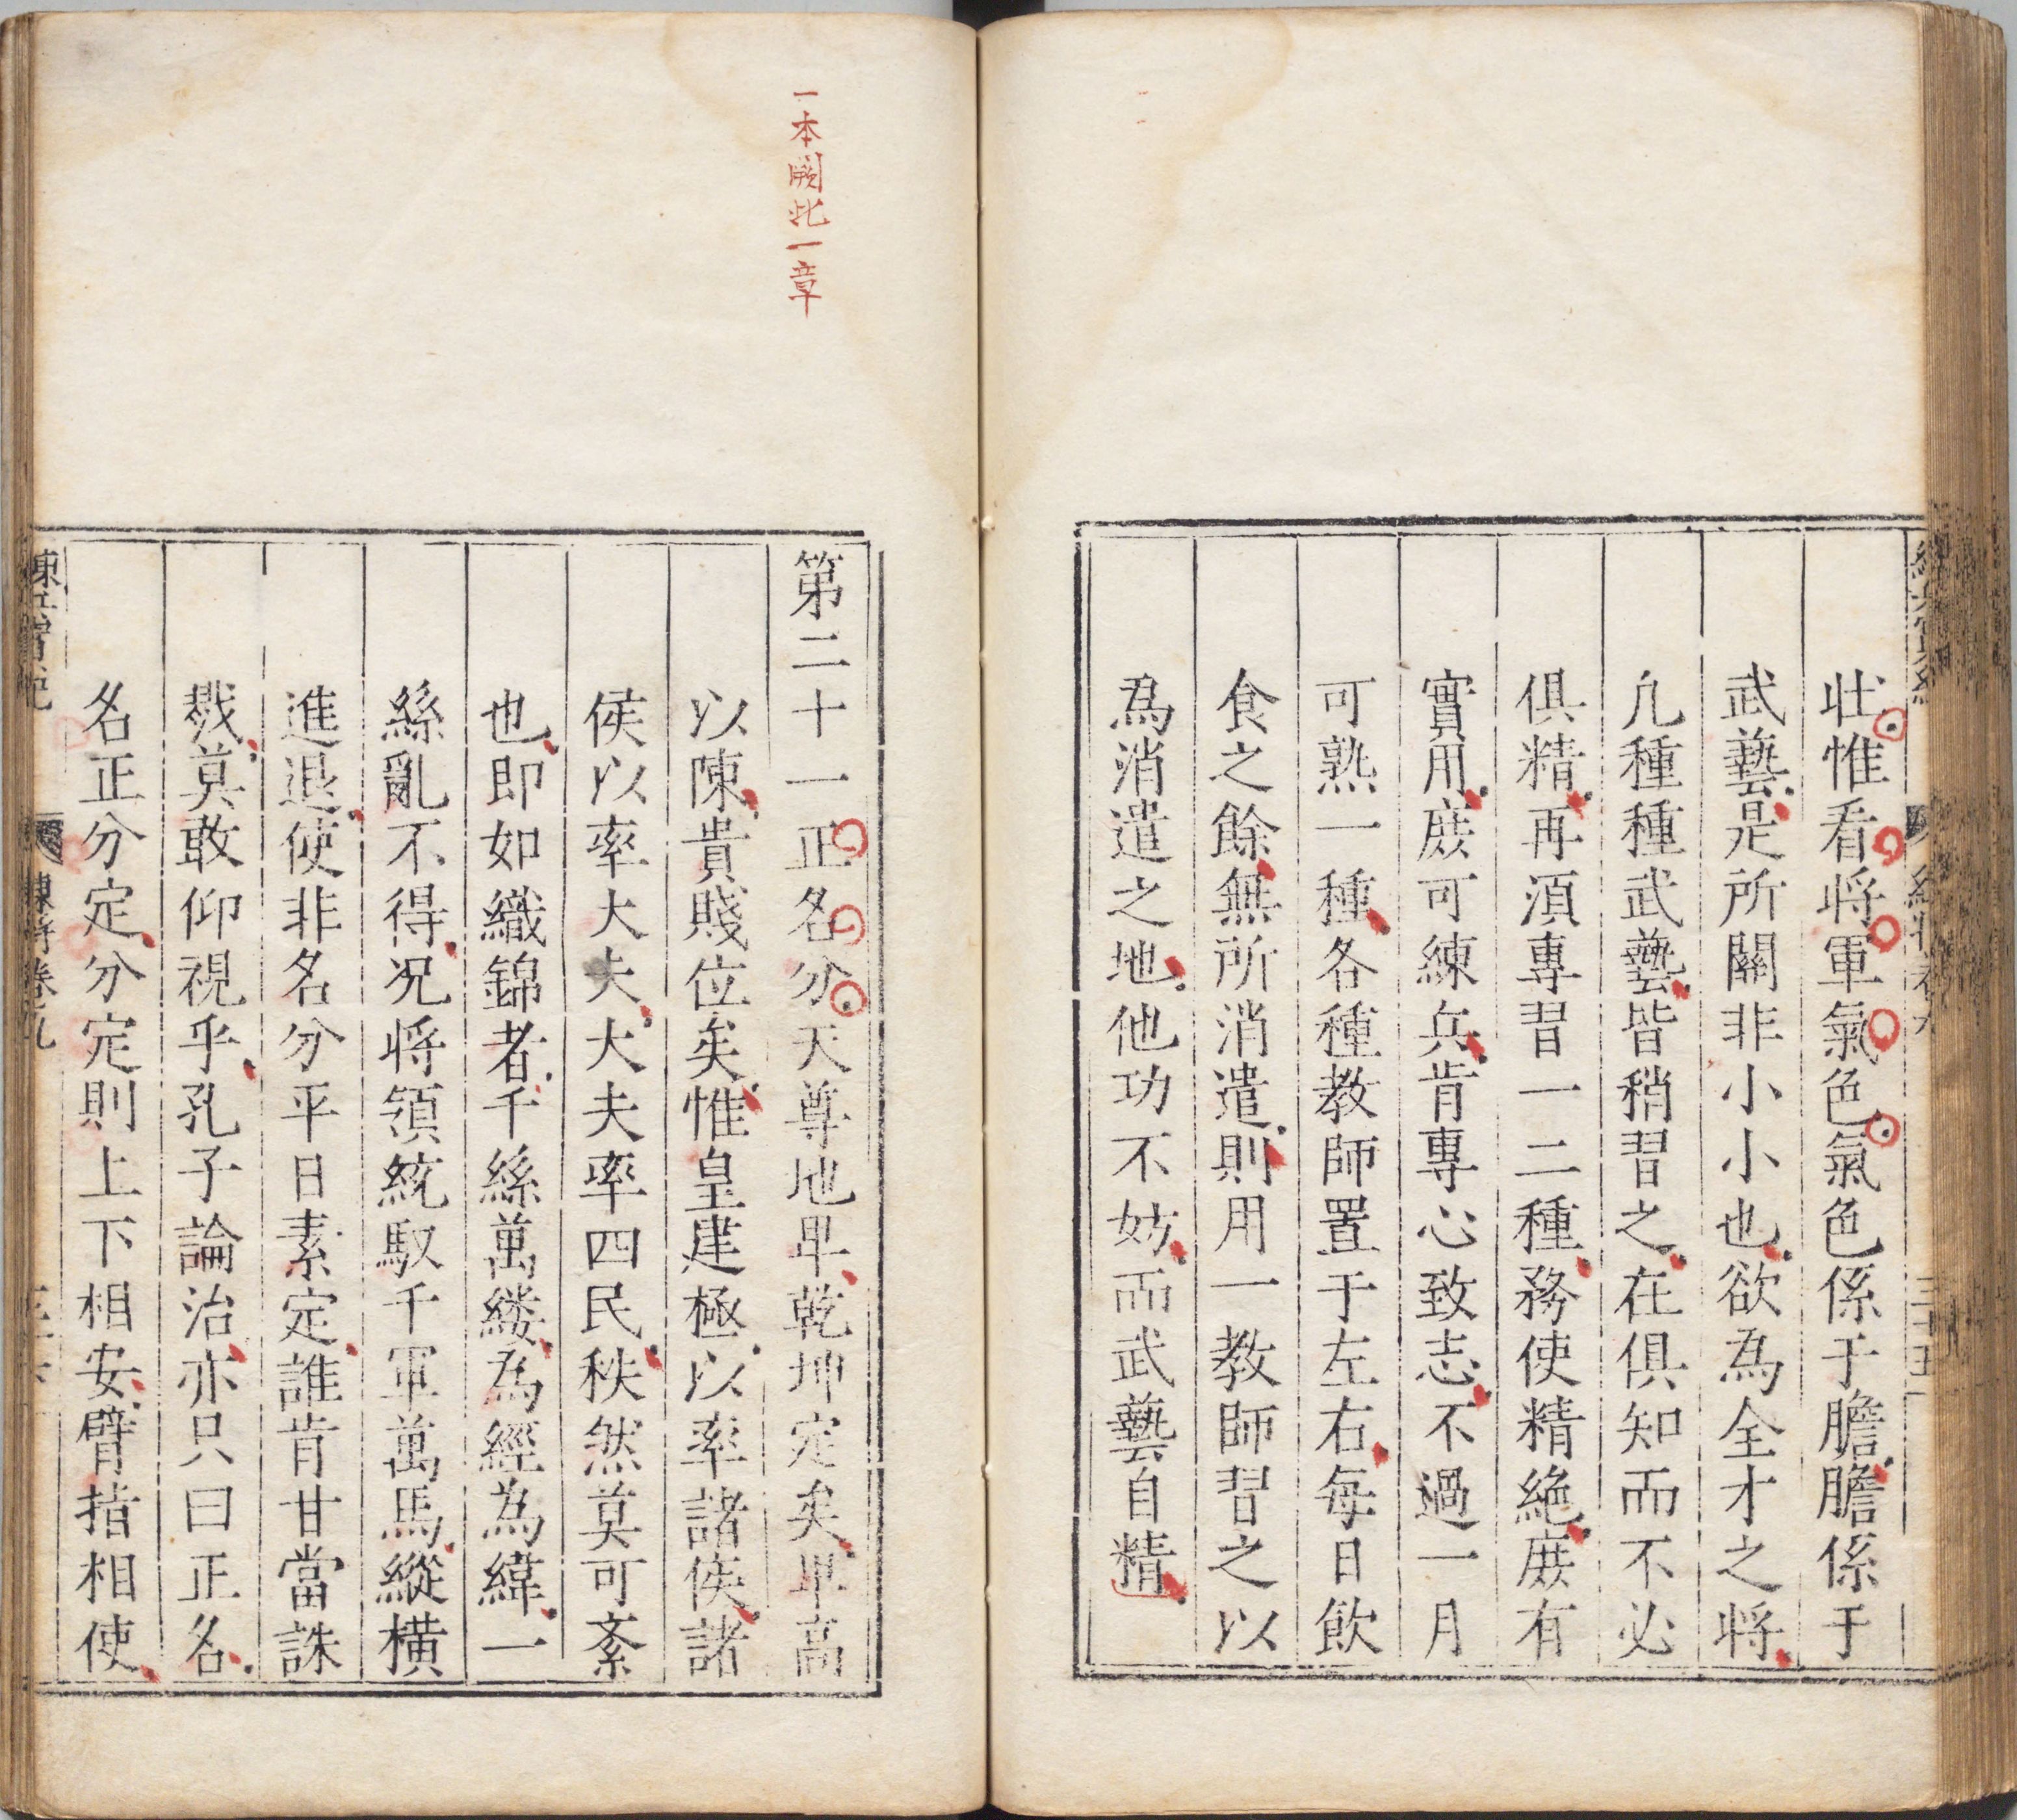 壯惟看將軍氣色氣色係于膽膽係于
武藝是所關非小小也欲為全才之將
凡種種武藝皆稍習之在俱知而不必
俱精再須專習一二種務使精絕庶有
實用庶可練兵肯專心致志不過一月
可熟一種各種教師置于左右每日飲
食之餘無所消遣則用一教師習之以
為消遣之地他功不妨而武藝自精
一本闕此一章
第二十一正名分天尊地卑乾坤定矣卑高
以陳貴賤位矣惟皇建極以率諸侯諸
侯以率大夫大夫率四民秩然莫可紊
也即如織錦者千絲萬縷為經為緯一
絲亂不得况將領統馭千軍萬馬縱橫
進退使非名分平日素定誰肯甘當誅
戮莫敢仰視乎孔子論治亦只曰正名
名正分定分定則上下相安臂指相使